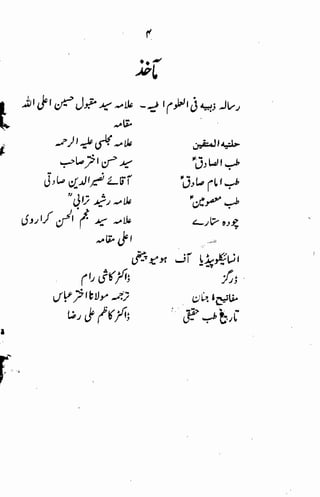 ۴
مآخذ
رسالہ ذہبیہ فی العلوم الطبیہ - علامہ سید مقبول حسین اعلی اللہ
مقامہ
حلیۃ المتقین علامہ مجلسی علیہ الرحمہ
طب الصادقؑ سید حسن اختر صاحب
طب امام صادقؑ آقائے نصیرالدین صادق
طب معصومینؑ علامہ رشید ترابیؒ
چودہ ستارے علامہ سید نجم الحسن کراروی
اعلی مقامہ
انسائیکلوپیڈیا آف ہومیوپیتھی
ڈرگز ڈاکٹر کاشی رام
مفاتیح الجنان ترجمہ مولانا اختر عباس
تاریخ طب حقیقی ڈاکٹر کاظم علی رضا